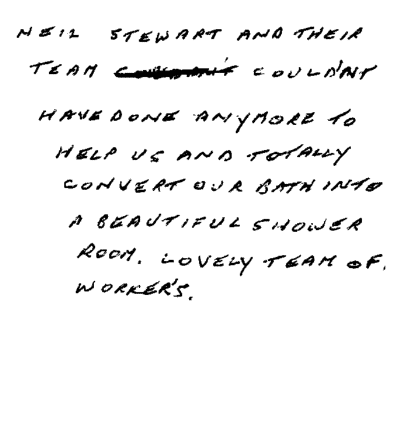 NEIL STEWART AND THEIR
TEAM COULDN'T
HAVE DONE ANYMORE TO
HELP US AND TOTALLY
CONVERT OUR BATH INTO
A BEAUTIFUL SHOWER
ROOM. LOVELY TEAM OF.
WORKER'S.